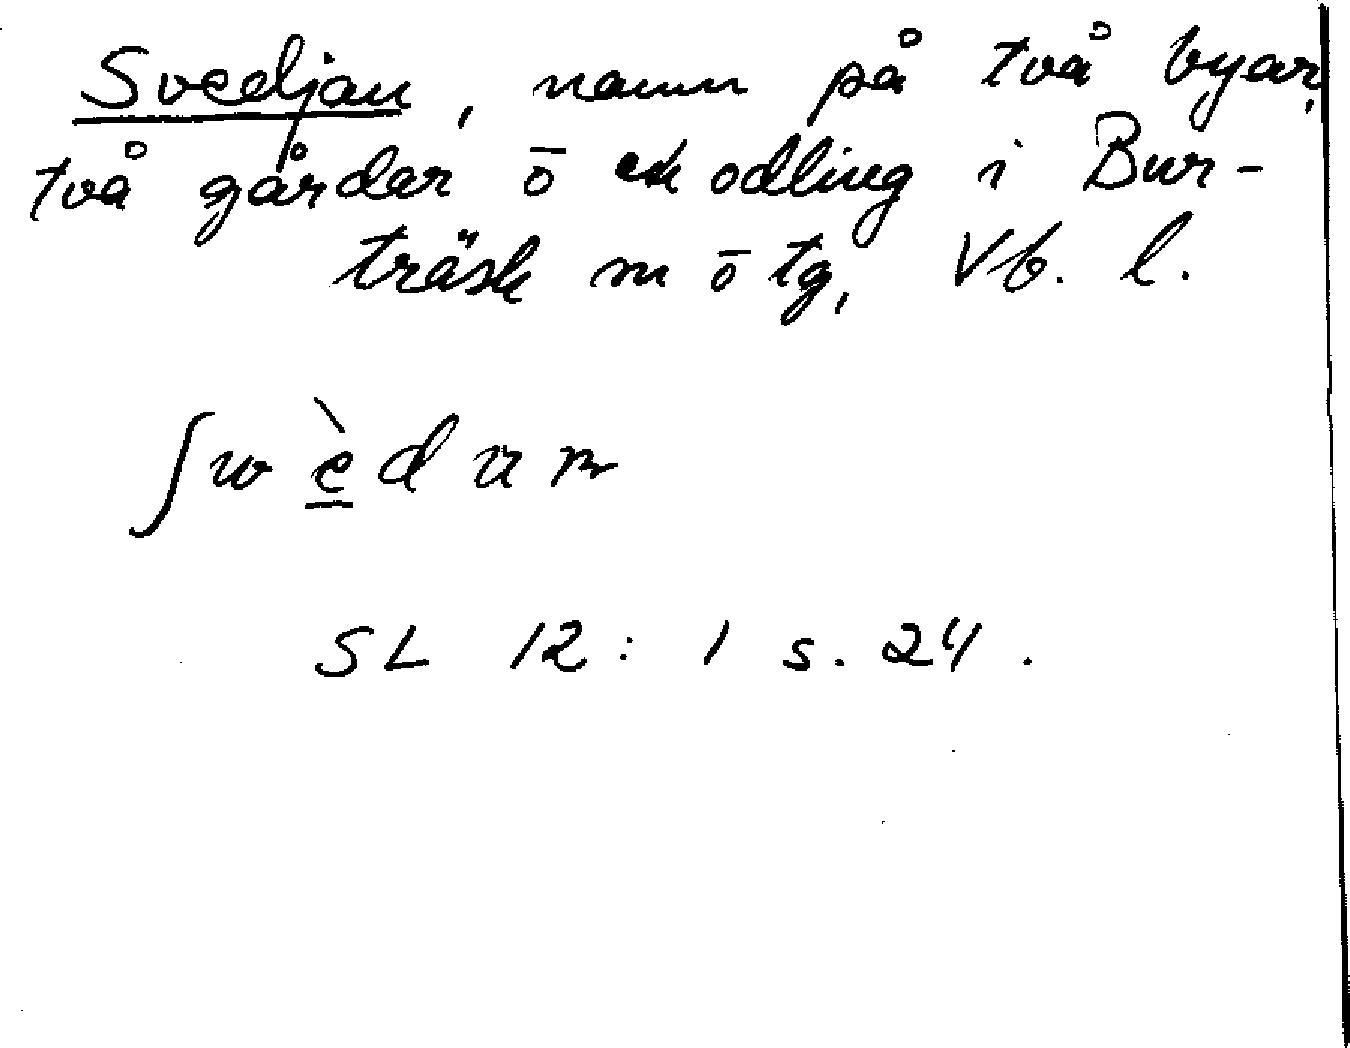 Svedjan, namn på två byar,
två gårdar ō en odling i Bur-
träsk sn ō tg, Vb. l.
ʃwèdan
SL 12:1 s. 24.